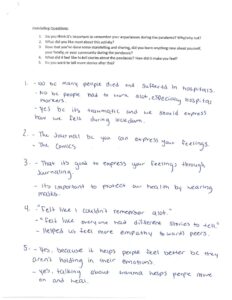 Debriefing Questions:
1. Do you think it's important to remember your experiences during the pandemic? Why/why not?
2. What did you like most about this activity?
3. Now that you've done some storytelling and sharing, did you learn anything new about yourself,
your family, or your community during the pandemic?
4. What did it feel like to tell stories about the pandemic? How did it make you feel?
5. Do you want to tell more stories after this?
1. - No bc many people died and suffered in hospitals.
- No bc people had to work alot, especially hospital
workers.
- Yes bc its traumatic and we should express
how we felt during lockdown.
2. - The Journal bc you can express your feelings.
- The comics
3. - That its good to express your feelings through
journaling.
- Its important to protect our health by wearing
masks.
4. - "Felt like I couldn't remember alot."
- "Felt like everyone had different stories to tell"
- Helped us feel more empathy towards peers.
5. - Yes, because it helps people feel better bc they
aren't holding in their emotions.
- Yes, talking about trauma helps people move
on and heal.